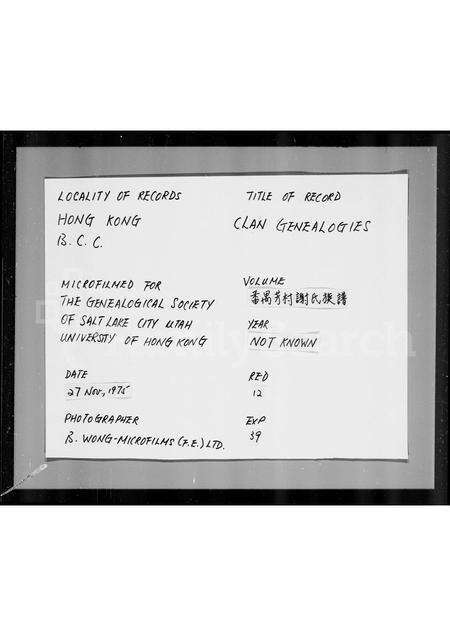 LOCALITY OF RECORDS
HONG KONG
B.C.C.
TITLE OF RECORD
CLAN GENEALOGIES
MICROFILMED FOR
THE GENEALOGICAL SOCIETY
OF SALT LAKE CITY UTAH
UNIVERSTY OF HONG KONG
VOLUME
番禺芳村謝氏族譜
YEAR
NOT KNOWN
DATE
27 NOV, 1975
RED
12
PHOTOGRAPHER
B. WONG-MICROFILMS (F.E.) LTD.
EXP
39